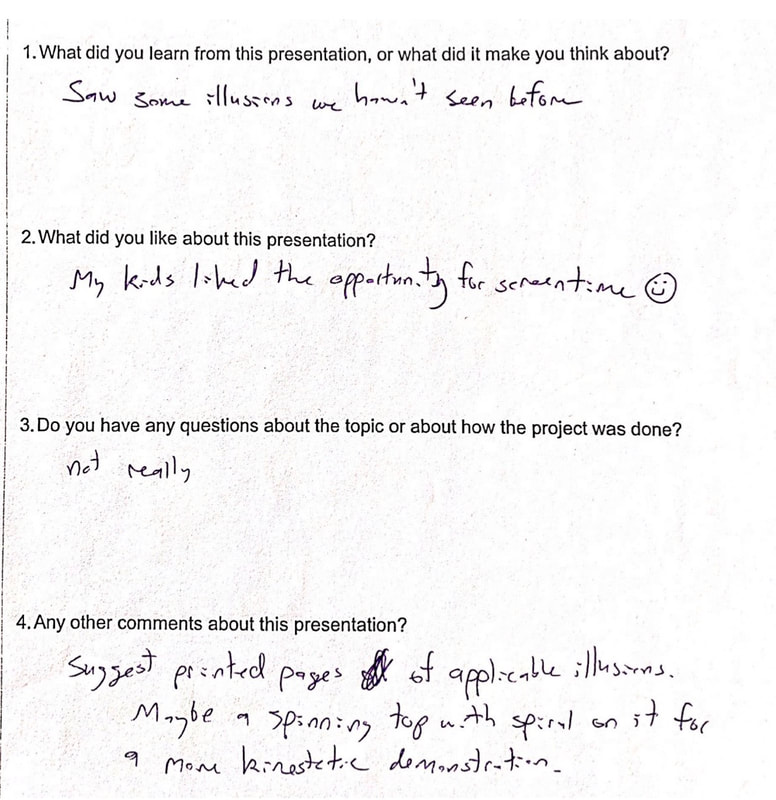 1. What did you learn from this presentation, or what did it make you think about?
Saw some illusions we haven't seen before
2. What did you like about this presentation?
My kids liked the opportunity for screentime ☺
3. Do you have any questions about the topic or about how the project was done?
not really
4. Any other comments about this presentation?
Suggest printed pages of applicable illusions.
Maybe a spinning top with spiral on it for
a more kinestetic demonstration.